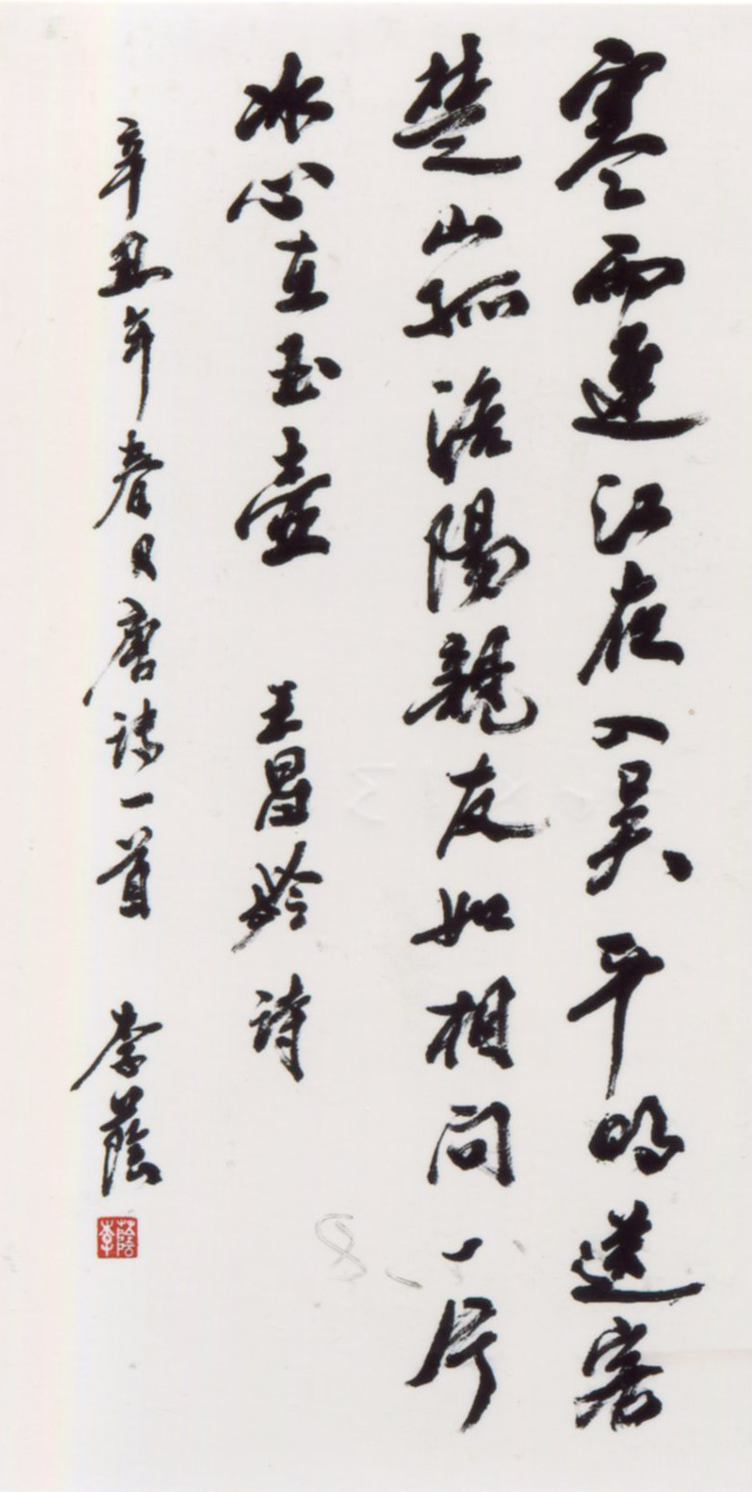 寒雨連江夜入吳平明送客
楚山孤洛陽親友如相問一片
冰心在玉壺 王昌齡詩
辛丑年春月唐詩一首 李蔭
李蔭